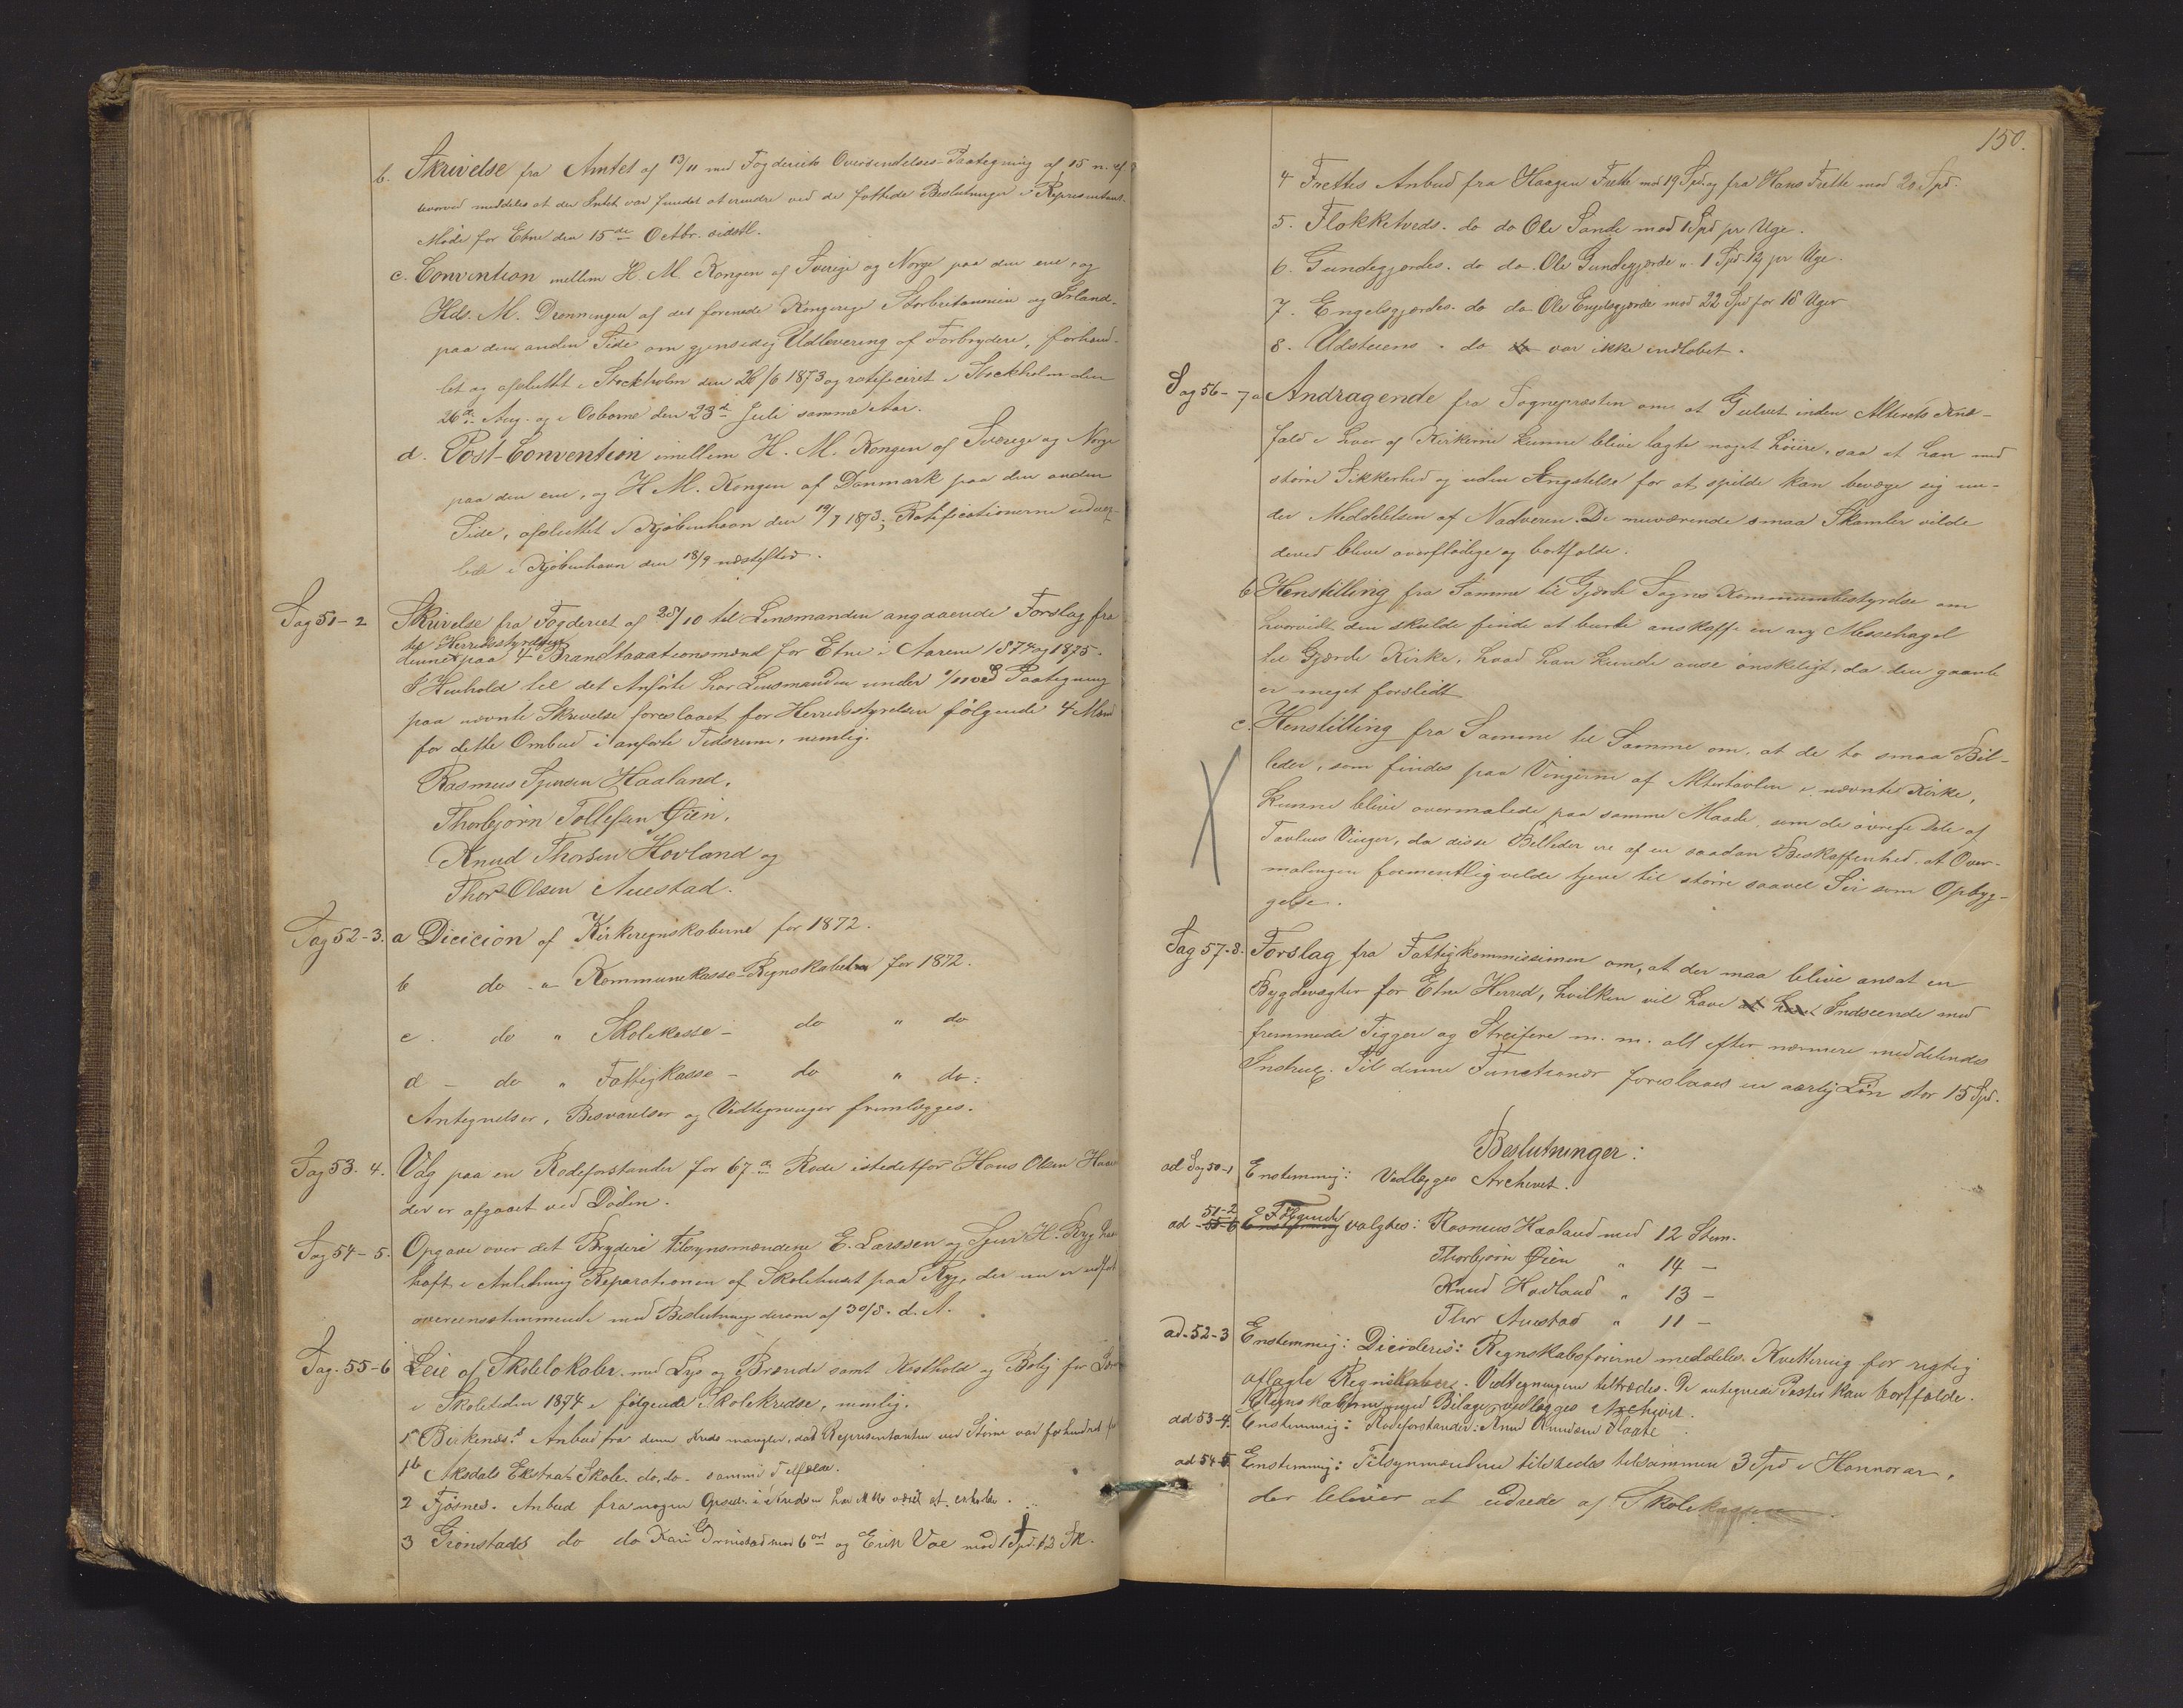 b. Skrivelse fra Amtet af 13/11 med Fogderiets Oversendelses-Paategning af 15 n. af
hvorved meddeles at der Intet var fundet at erindre ved de fattede Beslutninger i Repræsentant-
Møde for Etne den 15de Octbr. sidstl.
c. Convention mellem H. M. Kongen af Sverige og Norge paa den ene, og
Hds. M. Dronningen af det forenede Kongerige Storbritannien og Irland
paa den anden Side om gjensidig Udlevering af Forbrydere, forhand-
let og afsluttet i Stockholm den 26/6 1873 og ratificeret i Stockholm den
26de Aug. og i Osborne den 23de Juli samme Aar.
d. Post-Convention imellem H. M. Kongen af Sverige og Norge
paa den ene, og H M. Kongen af Danmark paa den anden
Side, afsluttet i Kjøbenhavn den 19/7 1873; Ratificationerne udvex-
lede i Kjøbenhavn den 18/9 næstefter.
Sag 51-2 Skrivelse fra Fogderiet af 28/10 til Lensmanden angaaende Forslag fra
til Herredsstyrelsen
denne paa 4 Brandtaxationsmænd for Etne i Aarene 1874 og 1875.
I Henhold til det Anførte har Lensmanden under /11 ved Paategning
paa nævnte Skrivelse foreslaaet for Herredsstyrelsen følgende 4 Mænd
for dette Ombud i anførte Tidsrum, nemlig.
Rasmus Sjursen Haaland,
Thorbjørn Tollefsen Øien,
Knud Thorsen Hovland og
Thor Olsen Auestad.
Sag 52-3. a Dicicion af Kirkeregnskaberne for 1872.
b do - Kommunekasse-Regnskabet for 1872.
c. do " Skolekasse - do " do
d - do " Fattigkasse - do " do.
Antegnelser, Besvarelser og Vedtegninger fremlægges.
Sag 53. 4. Valg paa en Rodeforstander for 67de Rode istedetfor Hans Olsen
der er afgaaet ved Døden.
Sag 54-5. Opgave over det Bryderi Tilsynsmændene E. Larssen og Sjur H. Ryg har
haft i Anledning Reparationen af Skolehuset paa Ryg, der nu er udført
overensstemmende med Beslutning derom af 30/5. d. A.
Sag. 55-6 Leie af Skolelokaler med Lys og Brænde samt Kosthold og Bolig for
i Skoletiden 1874 i følgende Skolekredse, nemlig.
1a Birkenæs. Anbud fra denne Kreds mangler, da Repræsentanten ved Stevne var forhindret
1b Aksdals Ekstra-Skole. do. do. samme Tilfælde.
2 Fjøsnes. Anbud fra nogen i Kredsen har ikke været at erholde.
3 Grønstads do do Kari Grønstad mod 6 ort og Erik Vae mod 1 Spd. 12 Sk.
150.
4 Frettes Anbud fra Haagen Frette mod 19 Spd. og fra Hans Frette mod 20 Spd.
5. Flokketveds. do do Ole Sande mod 1 Spd pr Uge.
6. Gundegjerdes. do do. Ole Gundegjerde " 1 Spd. 12 pr Uge.
7. Engelsgjerdes. do do Ole Engelsgjerde mod 22 Spd for 18 Uger
8. Udsteiens. do do var ikke indløbet.
Sag 56-7 a Andragende fra Sognepresten om at Gulvet inden Alterets Knæ-
fald i hver af Kirkerne kunne blive lagte noget høiere, saa at han med
større Sikkerhed og uden Ængstelse for at spilde kan bevæge sig un-
der Meddelelsen af Nadveren. De nuværende smaa Skamler vilde
derved blive overflødige og bortfalde.
b Henstilling fra Samme til Gjerde Sogns Kommunebestyrelse om
hvorvidt den skulde finde at burde anskaffe en ny Messehagel
til Gjerde Kirke, hvad han kunde anse ønskeligt, da den gamle
er meget forslidt
c. Henstilling fra Samme til Samme om, at de to smaa Bil-
leder, som findes paa Vingerne af Altertavlen i nævnte Kirke,
kunne blive overmalede paa samme Maade, som de øvrige Dele af
Tavlens Vinger, da disse Billeder ere af en saadan Beskaffenhed, at Over-
malingen formentlig vilde tjene til større saavel Sir som Opbyg-
gelse.
Sag 57-8. Forslag fra Fattigkommissionen om, at der maa blive ansat en
Bygdevægter for Etne Herred, hvilken vil have at have Indseende med
fremmede Tiggere og Streifere m. m. alt efter nærmere meddelendes
Instrux. Til denne Functionær foreslaaes en aarlig Løn stor 15 Spd.
Beslutninger:
ad Sag 50-1 Enstemmig: Vedlægges Archivet.
ad 51-2 55-6 Enstemmig Følgende valgtes: Rasmus Haaland med 12 Stem.
Thorbjørn Øien " 14 -
Knud Hovland " 13 -
Thor Auestad " 11 -
ad. 52-3 Enstemmig: Dicideres: Regnskabsførerne meddeles Kvittering for rigtig
aflagte Regnskaber. Vedtegningerne tiltrædes. De antegnede Poster kan bortfalde.
Regnskaberne med Bilage vedlægges Archivet.
ad 53-4. Enstemmig: Rodeforstander: Knud Knudsen
ad 54-5 Enstemmig: Tilsynmændene tilstedes tilsammen 3 Spd i Honnorar,
der bliver at udrede af Skolekassen.